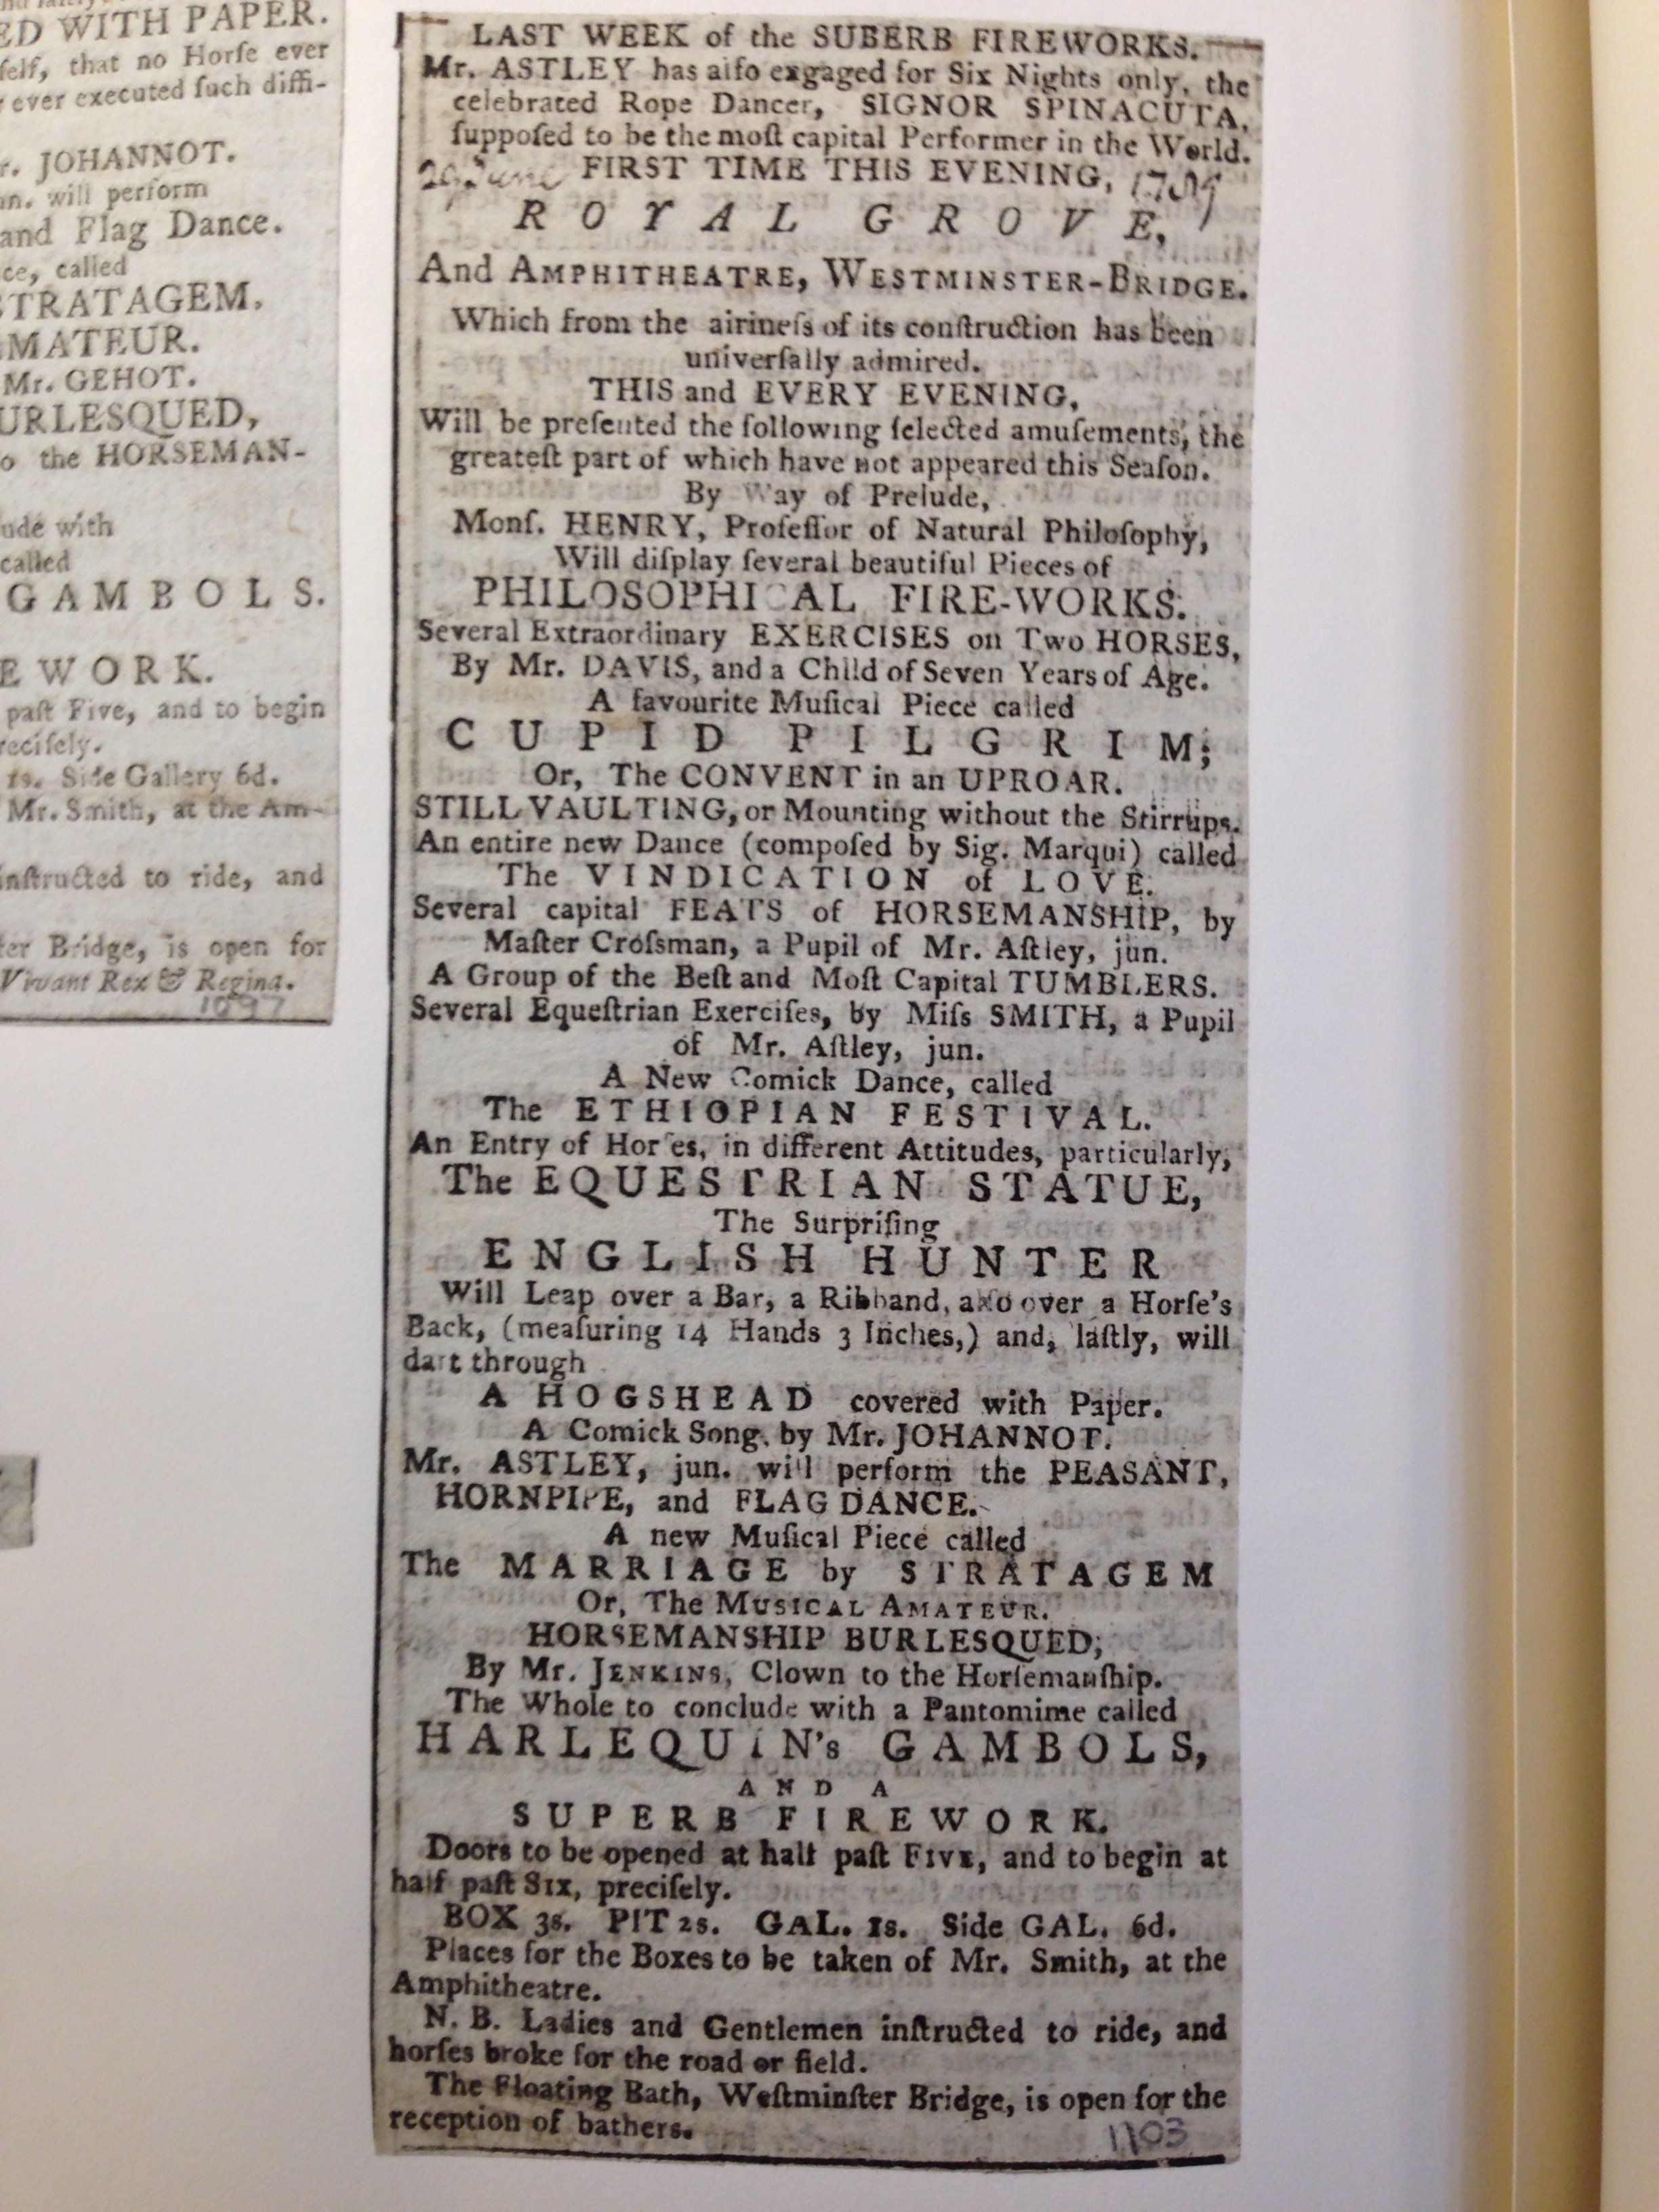 ED WITH PAPER.
ſelf, that no Horſe ever
ever executed ſuch diffi-
r. JOHANNOT.
un. will perform
and Flag Dance.
ce, called
STRATAGEM.
MATEUR.
Mr. GEHOT.
URLESQUED,
o the HORSEMAN-
ude with
called
GAMBOLS.
EWORK.
paſt Five, and to begin
reciſely.
1s. Side Gallery 6d.
Mr. Smith, at the Am-
inſtructed to ride, and
ter Bridge, is open for
Vivant Rex & Regina.
1097
LAST WEEK of the SUBERB FIREWORKS.
Mr. ASTLEY has alſo exgaged for Six Nights only, the
celebrated Rope Dancer, SIGNOR SPINACUTA,
ſuppoſed to be the moſt capital Performer in the World.
29 June FIRST TIME THIS EVENING, 1789
ROYAL GROVE,
And AMPHITHEATRE, WESTMINSTER-BRIDGE.
Which from the airineſs of its conſtruction has been
univerſally admired.
THIS and EVERY EVENING,
Will be preſented the following ſelected amuſements, the
greateſt part of which have not appeared this Seaſon.
By Way of Prelude,
Monſ. HENRY, Profeſſor of Natural Philoſophy,
Will diſplay ſeveral beautiful Pieces of
PHILOSOPHICAL FIRE-WORKS.
Several Extraordinary EXERCISES on Two HORSES,
By Mr. DAVIS, and a Child of Seven Years of Age.
A favourite Muſical Piece called
CUPID PILGRIM;
Or, The CONVENT in an UPROAR.
STILL VAULTING, or Mounting without the Stirrups.
An entire new Dance (compoſed by Sig. Marqui) called
The VINDICATION of LOVE.
Several capital FEATS of HORSEMANSHIP, by
Maſter Croſsman, a Pupil of Mr. Aſtley, jun.
A Group of the Beſt and Moſt Capital TUMBLERS.
Several Equeſtrian Exerciſes, by Miſs SMITH, a Pupil
of Mr. Aſtley, jun.
A New Comick Dance, called
The ETHIOPIAN FESTIVAL.
An Entry of Horſes, in different Attitudes, particularly,
The EQUESTRIAN STATUE,
The Surpriſing
ENGLISH HUNTER
Will Leap over a Bar, a Ribband, alſo over a Horſe's
Back, (meaſuring 14 Hands 3 Inches,) and, laſtly, will
dart through
A HOGSHEAD covered with Paper.
A Comick Song, by Mr. JOHANNOT.
Mr. ASTLEY, jun. will perform the PEASANT,
HORNPIPE, and FLAG DANCE.
A new Muſical Piece called
The MARRIAGE by STRATAGEM
Or, The MUSICAL AMATEUR.
HORSEMANSHIP BURLESQUED,
By Mr. JENKINS, Clown to the Horſemanſhip.
The Whole to conclude with a Pantomime called
HARLEQUIN's GAMBOLS,
AND A
SUPERB FIREWORK.
Doors to be opened at half paſt FIVE, and to begin at
half paſt SIX, preciſely.
BOX 3s. PIT 2s. GAL. 1s. Side GAL. 6d.
Places for the Boxes to be taken of Mr. Smith, at the
Amphitheatre.
N. B. Ladies and Gentlemen inſtructed to ride, and
horſes broke for the road or field.
The Floating Bath, Weſtminſter Bridge, is open for the
reception of bathers.
1103